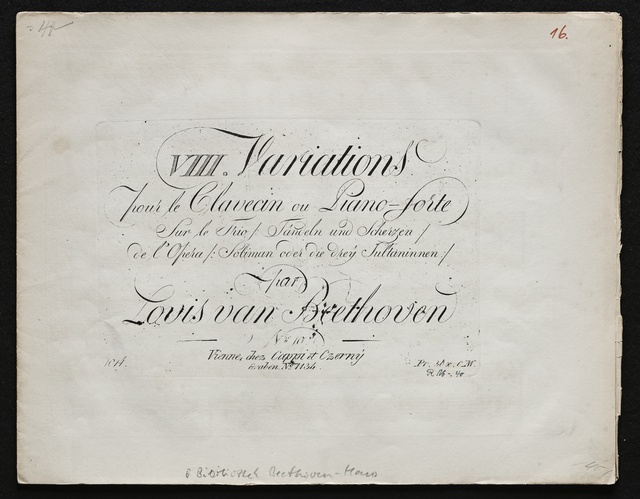 16.
VIII. Variations
pour le Clavecin ou Piano-forte
Sur le Trio /: Tändeln und Scherzen /
de l'Opera /: Soliman oder die dreÿ Sultaninnen :/
par
Lovis van Beethoven
No 10
Vienne, chez Cappi et Czernÿ
Graben. No 1134.
1014.
Pr. C.M.
Beethoven-Haus